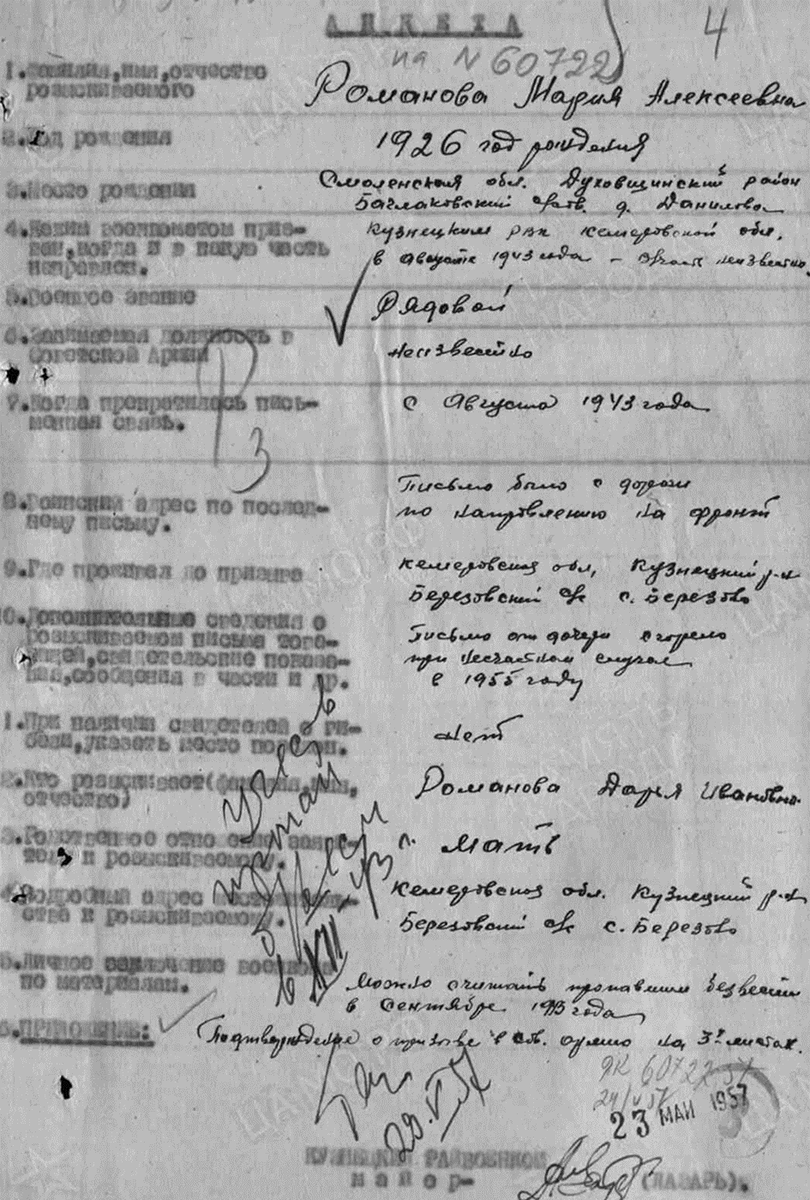 АНКЕТА
4
на N 60722
1.Фамилия,имя,отчество
розыскиваемого
Романова Мария Алексеевна
2.Год рождения
1926 год рождения
3.Место рождения
Смоленская обл. Духовщинский район
д. Данилово
4.Каким военкоматом приз-
ван,когда и в какую часть
направлен.
Кузнецким РВК Кемеровской обл.
в августе 1943 года - часть неизвестна
5.Военное звание
Рядовой
6.Занимаемая должность в
Советской Армии
неизвестно
7.Когда прекратилась пись-
менная связь.
с Августа 1943 года
8.Воинский адрес по послед-
нему письму.
Письмо было с дороги
по направлению на фронт
9.Где проживал до призыва
Кемеровская обл, Кузнецкий р-н
Березовский с/с с. Березово
10.Дополнительные сведения о
розыскиваемом письма това-
рищей,свидетельские показа-
ния,сообщения в части и др.
Письмо от дочери сгорело
при несчастном случае
в 1955 году
1.При наличии свидетелей о ги-
бели,указать место
нет
2.Кто розыскивает(фамилия,имя,
отчество)
Романова Дарья Ивановна
3.Родственное отношение заяви-
теля к розыскиваемому.
Мать
4.Подробный адрес
к розыскиваемому.
Кемеровская обл. Кузнецкий р-н
Березовский с/с с. Березово
5.Личное заключение военкома
по материалам.
Можно считать пропавшим безвести
в Сентябре 1943 года
ПРИЛОЖЕНИЕ:
Подтверждение о призыве в Сов. армию на 3х листах.
Учесть
пропал
б/вести
в XII-43 г.
23 МАЙ 1957
КУЗНЕЦКИЙ РАЙВОЕНКОМ
майор-
(ЛАЗАРЬ).